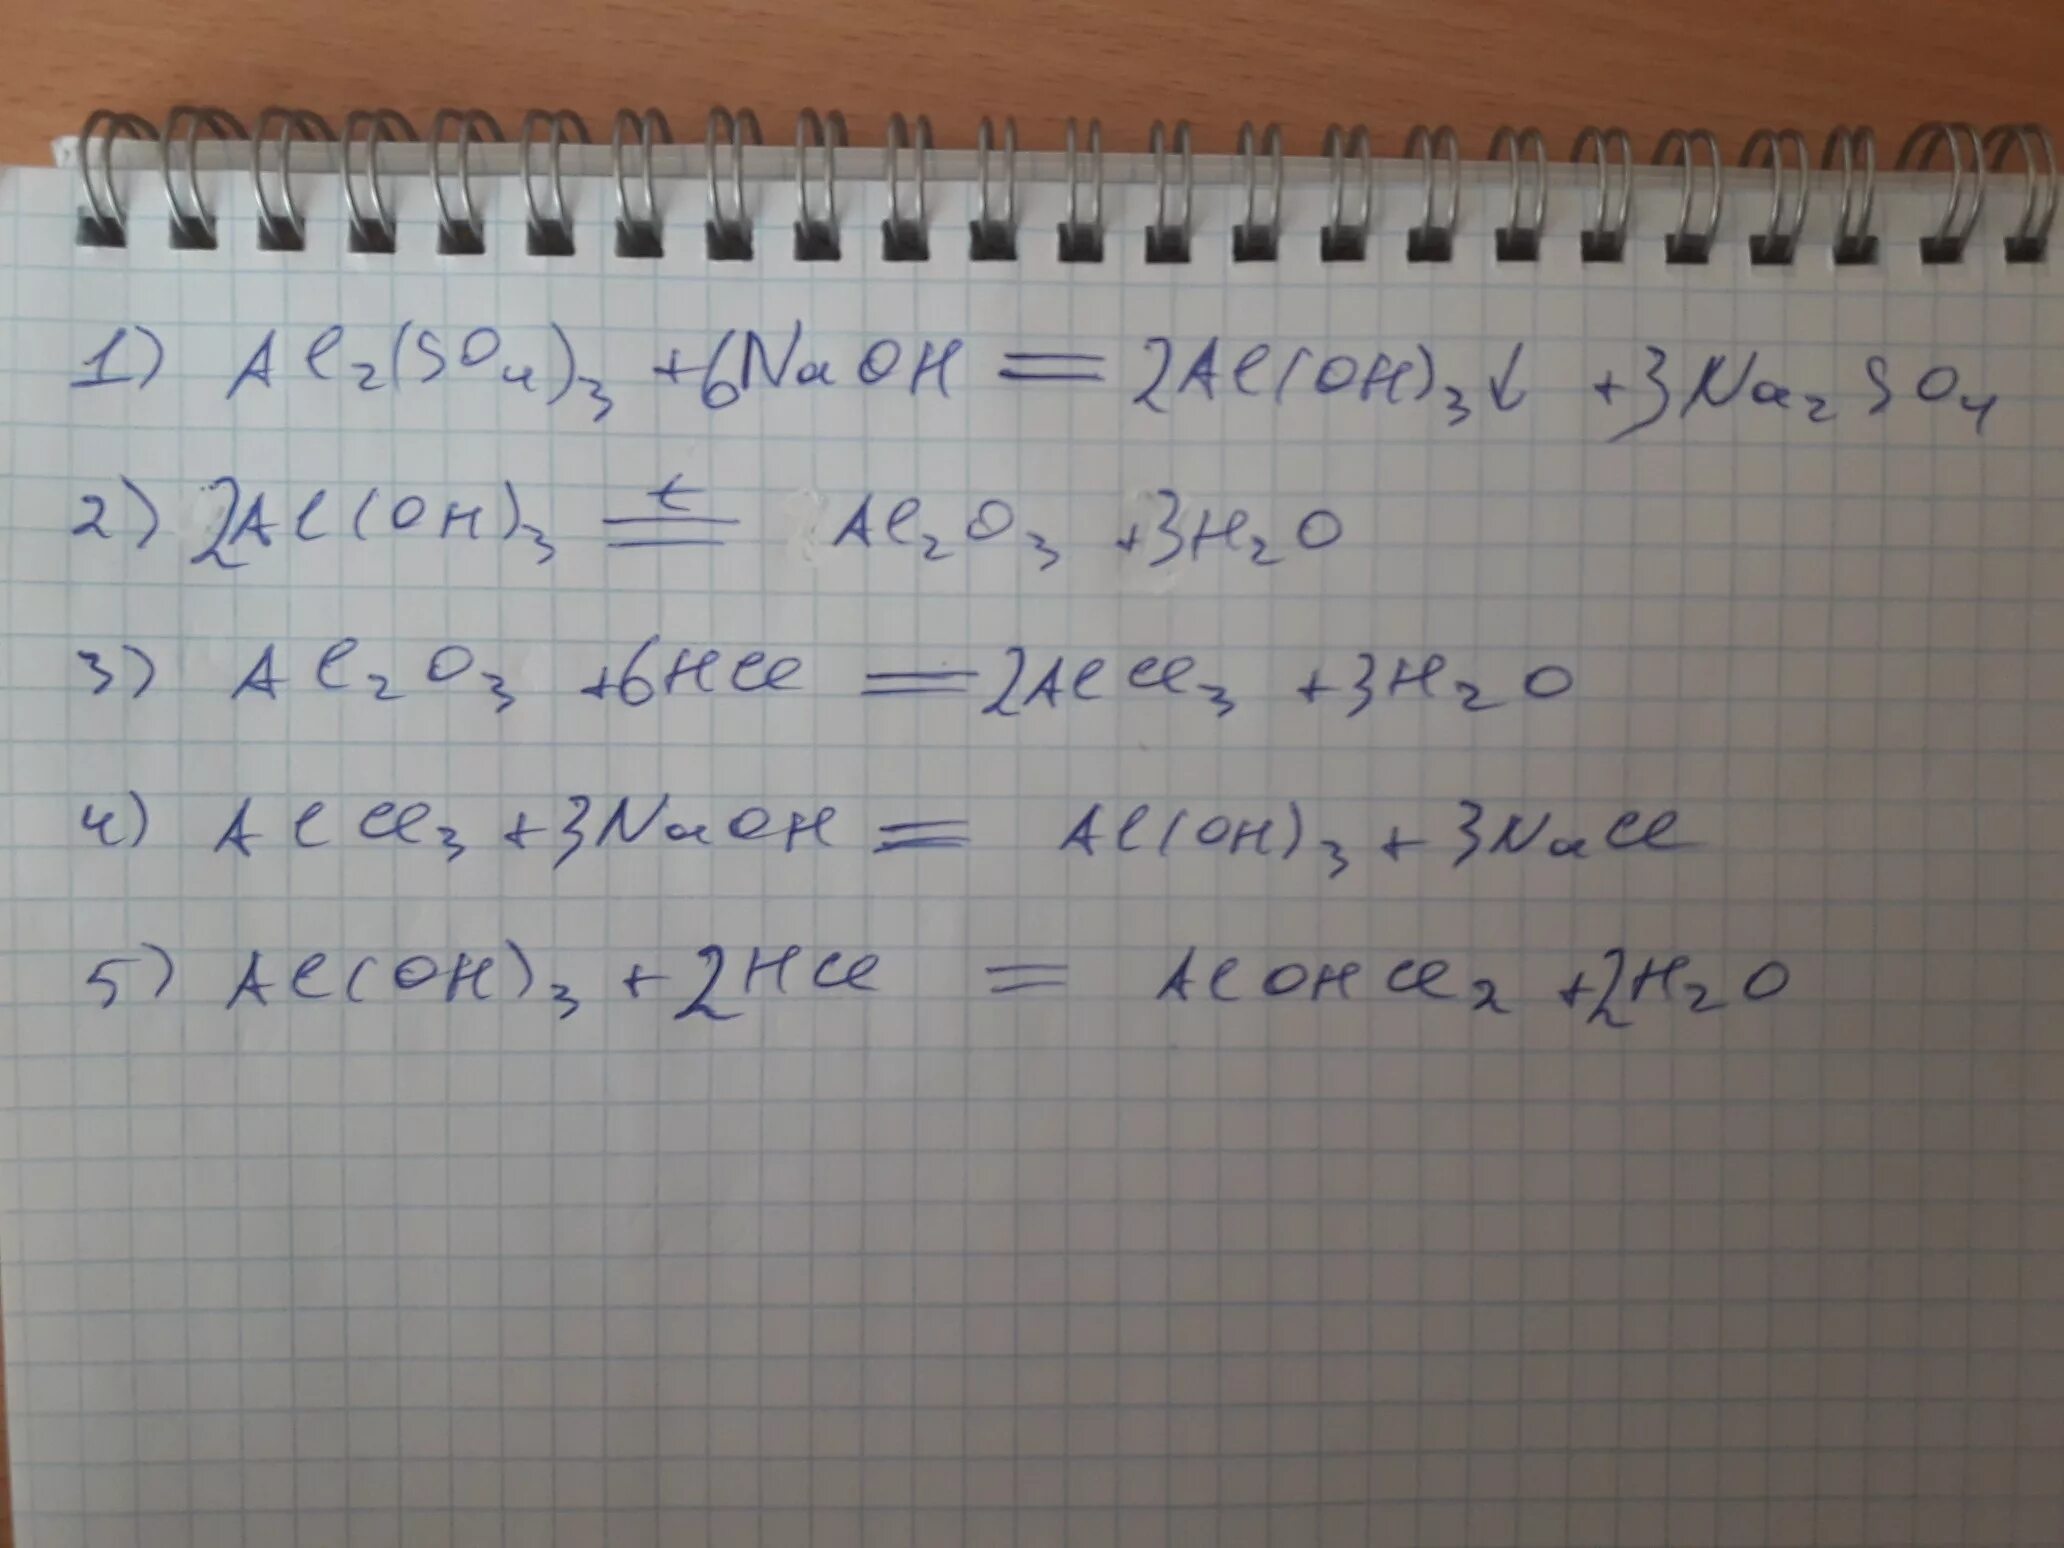 1) Al₂(SO₄)₃ +6NaOH = 2Al(OH)₃↓ +3Na₂SO₄
2) 2Al(OH)₃ =ᵗ Al₂O₃ +3H₂O
3) Al₂O₃ +6HCl = 2AlCl₃ +3H₂O
4) AlCl₃ +3NaOH = Al(OH)₃ + 3NaCl
5) Al(OH)₃ +2HCl = AlOHCl₂ +2H₂O